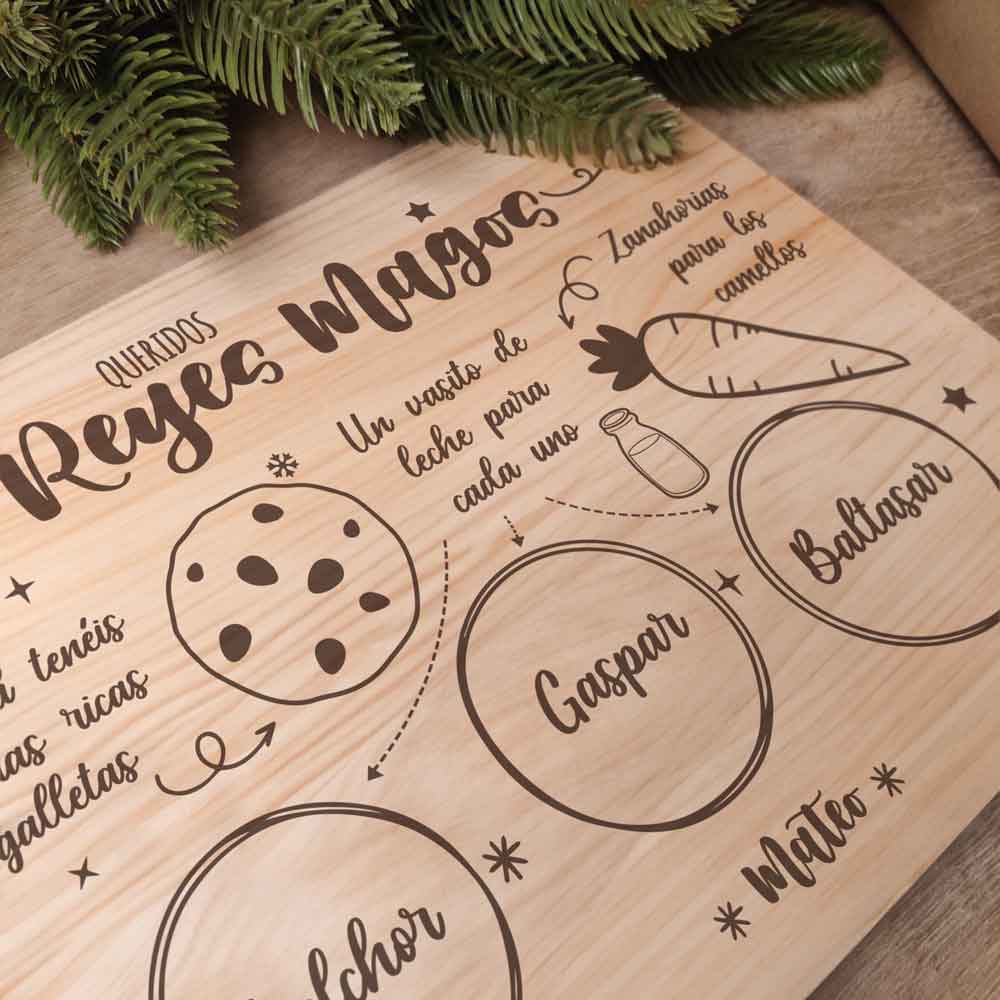 QUERIDOS
Reyes Magos
Zanahorias
para los
camellos
Un vasito de
leche para
cada uno
tenéis
ricas
galletas
Baltasar
Gaspar
Mateo